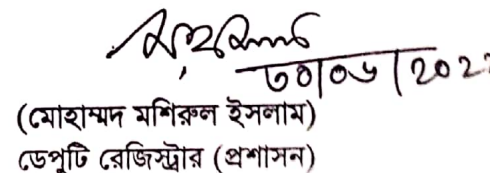 ৩০/০৬/202
(মোহাম্মদ মশিরুল ইসলাম)
ডেপুটি রেজিস্ট্রার (প্রশাসন)